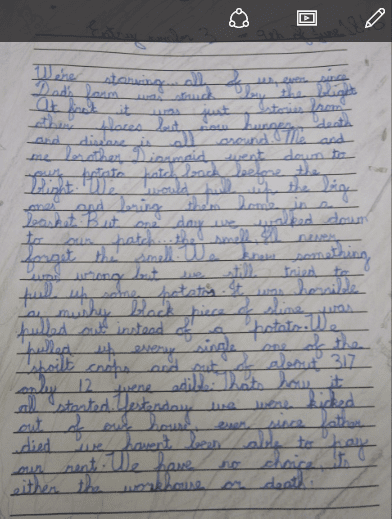 Entry number 3 - 9th of June
We're starving, all of us, ever since
Dad's farm was struck by the blight
At first it was just stories from
other places but now hunger, death
and disease is all around. Me and
me brother Diarmaid went down to
our potato patch back before the
blight. We would pull up the big
ones and bring them home in a
basket. But one day we walked down
to our patch... the smell, I'll never
forget the smell. We knew something
was wrong but we still tried to
pull up some potatos. It was horrible
a murky black piece of slime was
pulled out instead of a potato. We
pulled up every single one of the
spoilt crops and out of about 317
only 12 were edible. Thats how it
all started. Yesterday we were kicked
out of our house, ever since father
died we havent been able to pay
our rent. We have no choice, its
either the workhouse or death.